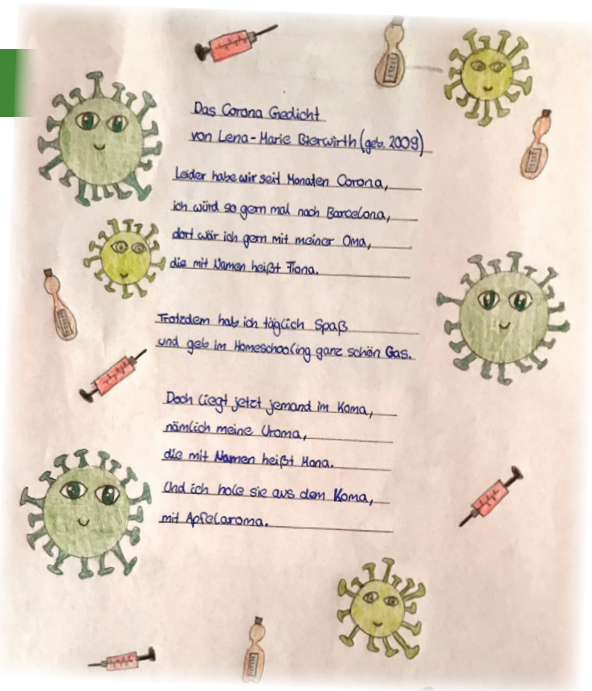 Das Corona Gedicht
von Lena-Marie Bierwirth (geb. 2009)
Leider habe wir seit Monaten Corona,
ich würd so gern mal nach Barcelona,
dort wär ich gern mit meiner Oma,
die mit Namen heißt Fiona.
Trotzdem hab ich täglich Spaß
und geb im Homeschooling ganz schön Gas.
Doch liegt jetzt jemand im Koma,
nämlich meine Uroma,
die mit Namen heißt Mona.
Und ich hole sie aus dem Koma,
mit Apfelaroma.